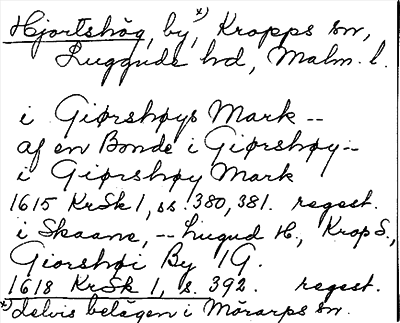 Hjortshög, by, x) Kropps sn,
Luggude hd, Malm. l.
i Giørshøys Mark --
af en Bonde i Giørshøy --
i Giørshøy Mark
1615 KrSk 1, ss. 380, 381. regest.
i Skaane, -- Lugud H., Krop S.,
Giorshøi By 1G.
1618 KrSk 1, s. 392. regest.
x) delvis belägen i Mörarps sn.